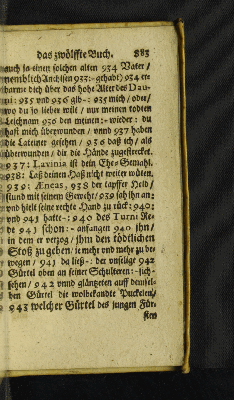 das zwölffte Buch. 883
auch ja einen solchen alten 934 Vater /
nemblich Anchisen 933:-gehabt) 934 er-
barme dich über das hohe Alter des Dau-
ni: 935 und 936 gib-: 935 mich / oder /
wo du jo lieber wilt / nur meinen todten
Leichnam 936 den meinen:-wieder : du
hast mich überwunden / vnnd 937 haben
die Lateiner gesehen / 936 daß ich / als
überwunden / dir die Hände zugestrecket.
937: Lavinia ist dein Ehe-Gemahl.
938: Laß deinen Haß nicht weiter wüten.
939: Æneas, 938 der tapffer Held /
stund mit seinem Gewehr / 939 sah ihn an:
vnd hielt seine rechte Hand zu rück: 940:
vnd 941 hatte-: 940 des Turni Re-
de 941 schon:- anfangen 940 jhn /
in dem er verzog / jhm den tödtlichen
Stoß zu geben / je mehr vnd mehr zu be-
wegen / 941 da ließ-: der unselige 942
Gürtel oben an seiner Schulteren:-sich-
sehen / 942 vnnd gläntzeten auff demsel-
ben Gürtel die wolbekandte Puckelen /
943 welcher Gürtel des jungen Für-
sten